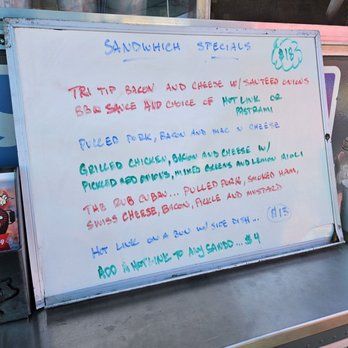 SANDWHICH SPECIALS
$18
TRI TIP, BACON AND CHEESE W/ SAUTEED ONIONS
BBQ SAUCE AND CHOICE OF HOT LINK OR
PASTRAMI
PULLED PORK, BACON AND MAC N CHEESE
GRILLED CHICKEN, BACON AND CHEESE W/
PICKLED RED ONIONS, MIXED GREENS AND LEMON AIOLI
THE RUB CUBAN... PULLED PORK, SMOKED HAM,
SWISS CHEESE, BACON, PICKLE AND MUSTARD
HOT LINK ON A BUN W/ SIDE DISH... $13
ADD A HOT LINK TO ANY SANDO... $4